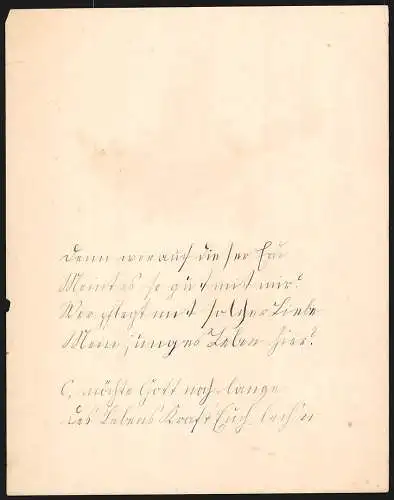 Denn wer auf dieser Erd
Meint es so gut mit mir?
Wer pflegt mit solcher Liebe
Mein junges Leben hier?
O, möchte Gott noch lange
Des Lebens Kraft Euch leih'n